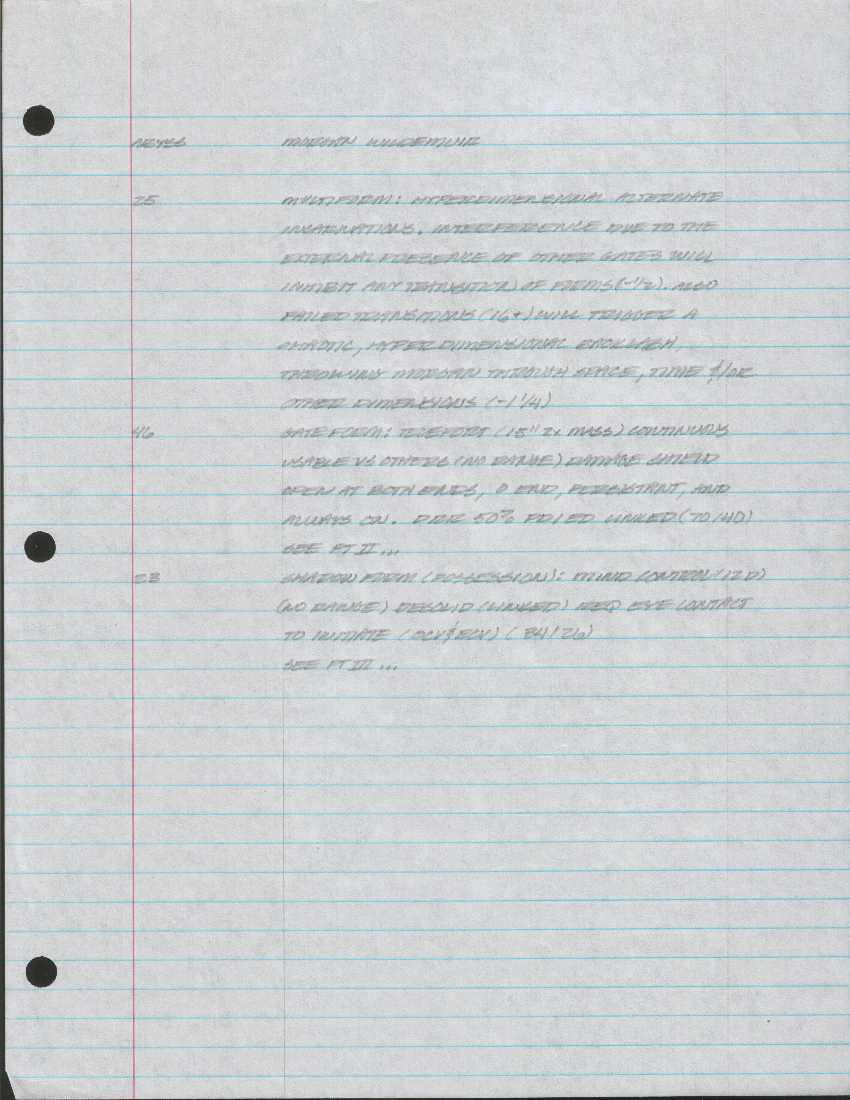 ABYSS MORGAN WILDEMUIR
25 MULTIFORM: HYPERDIMENSIONAL ALTERNATE
INCARNATIONS. INTERFERENCE DUE TO THE
EXTERNAL PRESENCE OF OTHER GATES WILL
INHIBIT ANY TRANSITION OF FORMS (-1/2). ALSO
FAILED TRANSITIONS (16+) WILL TRIGGER A
CHAOTIC, HYPERDIMENSIONAL BACKLASH,
THROWING MORGAN THROUGH SPACE, TIME &/OR
OTHER DIMENSIONS (-1 1/4)
46 GATE FORM: TELEPORT (15" 2x MASS) CONTINUOUS
USABLE VS OTHERS (NO RANGE) DAMAGE SHIELD
OPEN AT BOTH ENDS, 0 END, PERSISTANT, AND
ALWAYS ON. 50% LINKED (TO 140)
SEE PT II...
23 SHADOW FORM (POSSESSION): MIND CONTROL (12D)
(NO RANGE) DESOLID (LINKED) REQ EYE CONTACT
TO INITIATE (OCV & ECV) (84/26)
SEE PT III...